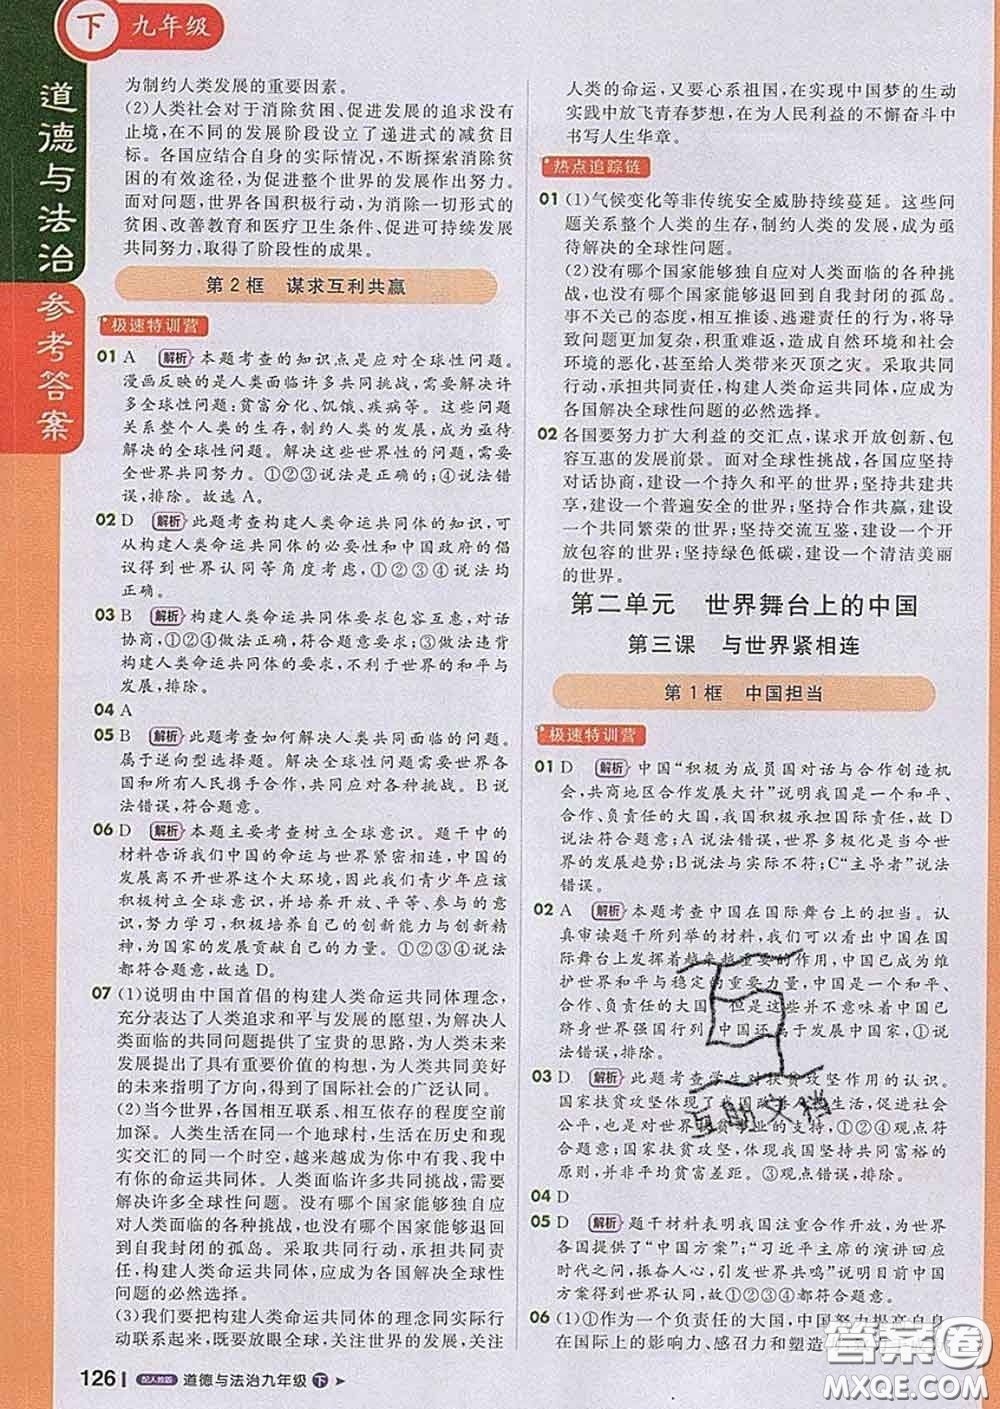 下 九年级
道德与法治
参考答案
为制约人类发展的重要因素。
(2)人类社会对于消除贫困、促进发展的追求没有
止境,在不同的发展阶段设立了递进式的减贫目
标。各国应结合自身的实际情况,不断探索消除贫
困的有效途径,为促进整个世界的发展作出努力。
面对问题,世界各国积极行动,为消除一切形式的
贫困、改善教育和医疗卫生条件、促进可持续发展
共同努力,取得了阶段性的成果。
第2框 谋求互利共赢
极速特训营
01 A 解析 本题考查的知识点是应对全球性问题。
漫画反映的是人类面临许多共同挑战,需要解决许
多全球性问题:贫富分化、饥饿、疾病等。这些问题
关系整个人类的生存,制约人类的发展,成为亟待
解决的全球性问题。解决这些世界性的问题,需要
全世界共同努力。①②③说法是正确的;④说法错
误,排除。故选A。
02 D 解析 此题考查构建人类命运共同体的知识,可
从构建人类命运共同体的必要性和中国政府的倡
议得到世界认同等角度考虑,①②③④说法均
正确。
03 B 解析 构建人类命运共同体要求包容互惠,对话
协商,①②④做法正确,符合题意要求;③做法违背
构建人类命运共同体的要求,不利于世界的和平与
发展,排除。
04 A
05 B 解析 此题考查如何解决人类共同面临的问题。
属于逆向型选择题。解决全球性问题,需要世界各
国和所有人民携手合作,共同行动起来。B说
法错误,符合题意。
06 D 解析 本题主要考查树立全球意识。题干中的
材料告诉我们中国的命运与世界紧密相连,中国的
发展离不开世界这个大环境,因此我们青少年应该
积极树立全球意识,并培养开放、平等、参与的意
识,努力学习,积极培养自己的创新能力与创新精
神,为国家的发展贡献自己的力量。①②③④说法
都符合题意,故选D。
07 (1)说明由中国首倡的构建人类命运共同体理念,
充分表达了人类追求和平与发展的愿望,为解决人
类面临的共同问题提供了宝贵的思路,为人类未来
发展提出了具有重要价值的构想,为人类共同美好
的未来指明了方向,得到了国际社会的广泛认同。
(2)当今世界,各国相互联系、相互依存的程度空前
加深。人类生活在同一个地球村,生活在历史和现
实交汇的同一个时空,越来越成为你中有我、我中
有你的人类命运共同体。面对共同挑战,需要共同
解决许多全球性问题。没有哪个国家能够独自应
对人类面临的各种挑战,也没有哪个国家能够退回
自我封闭的孤岛。采取共同行动,承担共同责任,
构建人类命运共同体,应成为各国解决全球性问题
的必然选择。
(3)我们要把构建人类命运共同体的理念同实际行
动联系起来,既要放眼全球,关注世界的发展,关注
人类的命运,又要心系祖国,在实现中国梦的生动
实践中放飞青春梦想,在为人民利益的不懈奋斗中
书写人生华章。
热点追踪链
01 (1)气候变化等非传统安全威胁持续蔓延。这些问
题关系整个人类的生存,制约人类的发展,成为亟
待解决的全球性问题。
(2)没有哪个国家能够独自应对人类面临的各种挑
战,也没有哪个国家能够退回自我封闭的孤岛。
事不关己的态度,相互推诿责任的行为,将导致
问题更加复杂,积重难返,造成自然环境和社会
环境的恶化,甚至给人类带来灭顶之灾。采取共同
行动,承担共同责任,构建人类命运共同体,应成为
各国解决全球性问题的必然选择。
02 各国要努力扩大利益的交汇点,谋求开放创新、包
容互惠的发展前景。面对全球性挑战,各国应坚持
对话协商,建设一个持久和平的世界;坚持共建共
享,建设一个普遍安全的世界;坚持合作共赢,建设
一个共同繁荣的世界;坚持交流互鉴,建设一个开
放包容的世界;坚持绿色低碳,建设一个清洁美丽
的世界。
第二单元 世界舞台上的中国
第三课 与世界紧相连
第1框 中国担当
极速特训营
01 D 解析 中国“积极为成员国对话与合作创造机
会,共商地区合作发展大计”说明我国是一个和平、
合作、负责任的大国,我国积极承担国际责任,故D
说法符合题意;A说法错误,世界多极化是当今世
界的发展趋势;B说法与实际不符;C“主导者”说法
错误。
02 A 解析 本题考查中国在国际舞台上的担当。认
真审读题干所列举的材料,我们可以看出中国在国
际舞台上发挥着越来越重要的作用,中国已成为维
护世界和平与稳定的重要力量,中国是一个和平、
合作、负责任的大国,但是这些并不意味着中国已
跻身世界强国行列,中国还属于发展中国家,①说
法错误,排除。
03 D 解析 此题考查学生对扶贫攻坚作用的认识。
国家扶贫攻坚体现了我国改善人民生活,促进社会
公平,也是对世界减贫事业的支持,①②④观点符
合题意;国家扶贫攻坚,体现我国坚持共同富裕的
原则,并非平均贫富差距。③观点错误,排除。
04 D
05 D 解析 题干材料表明我国注重合作开放,为世界
各国提供了“中国方案”;“习近平主席的演讲回应
时代之问,振奋人心,引发世界共鸣”说明目前中国
方案得到世界认同,故①②③④都符合题意。
06 (1)①作为一个负责任的大国,中国努力提高自身
在国际上的影响力、感召力和塑造
互助文档
答案圈
MXQE.COM
126 配人教版 道德与法治九年级 下